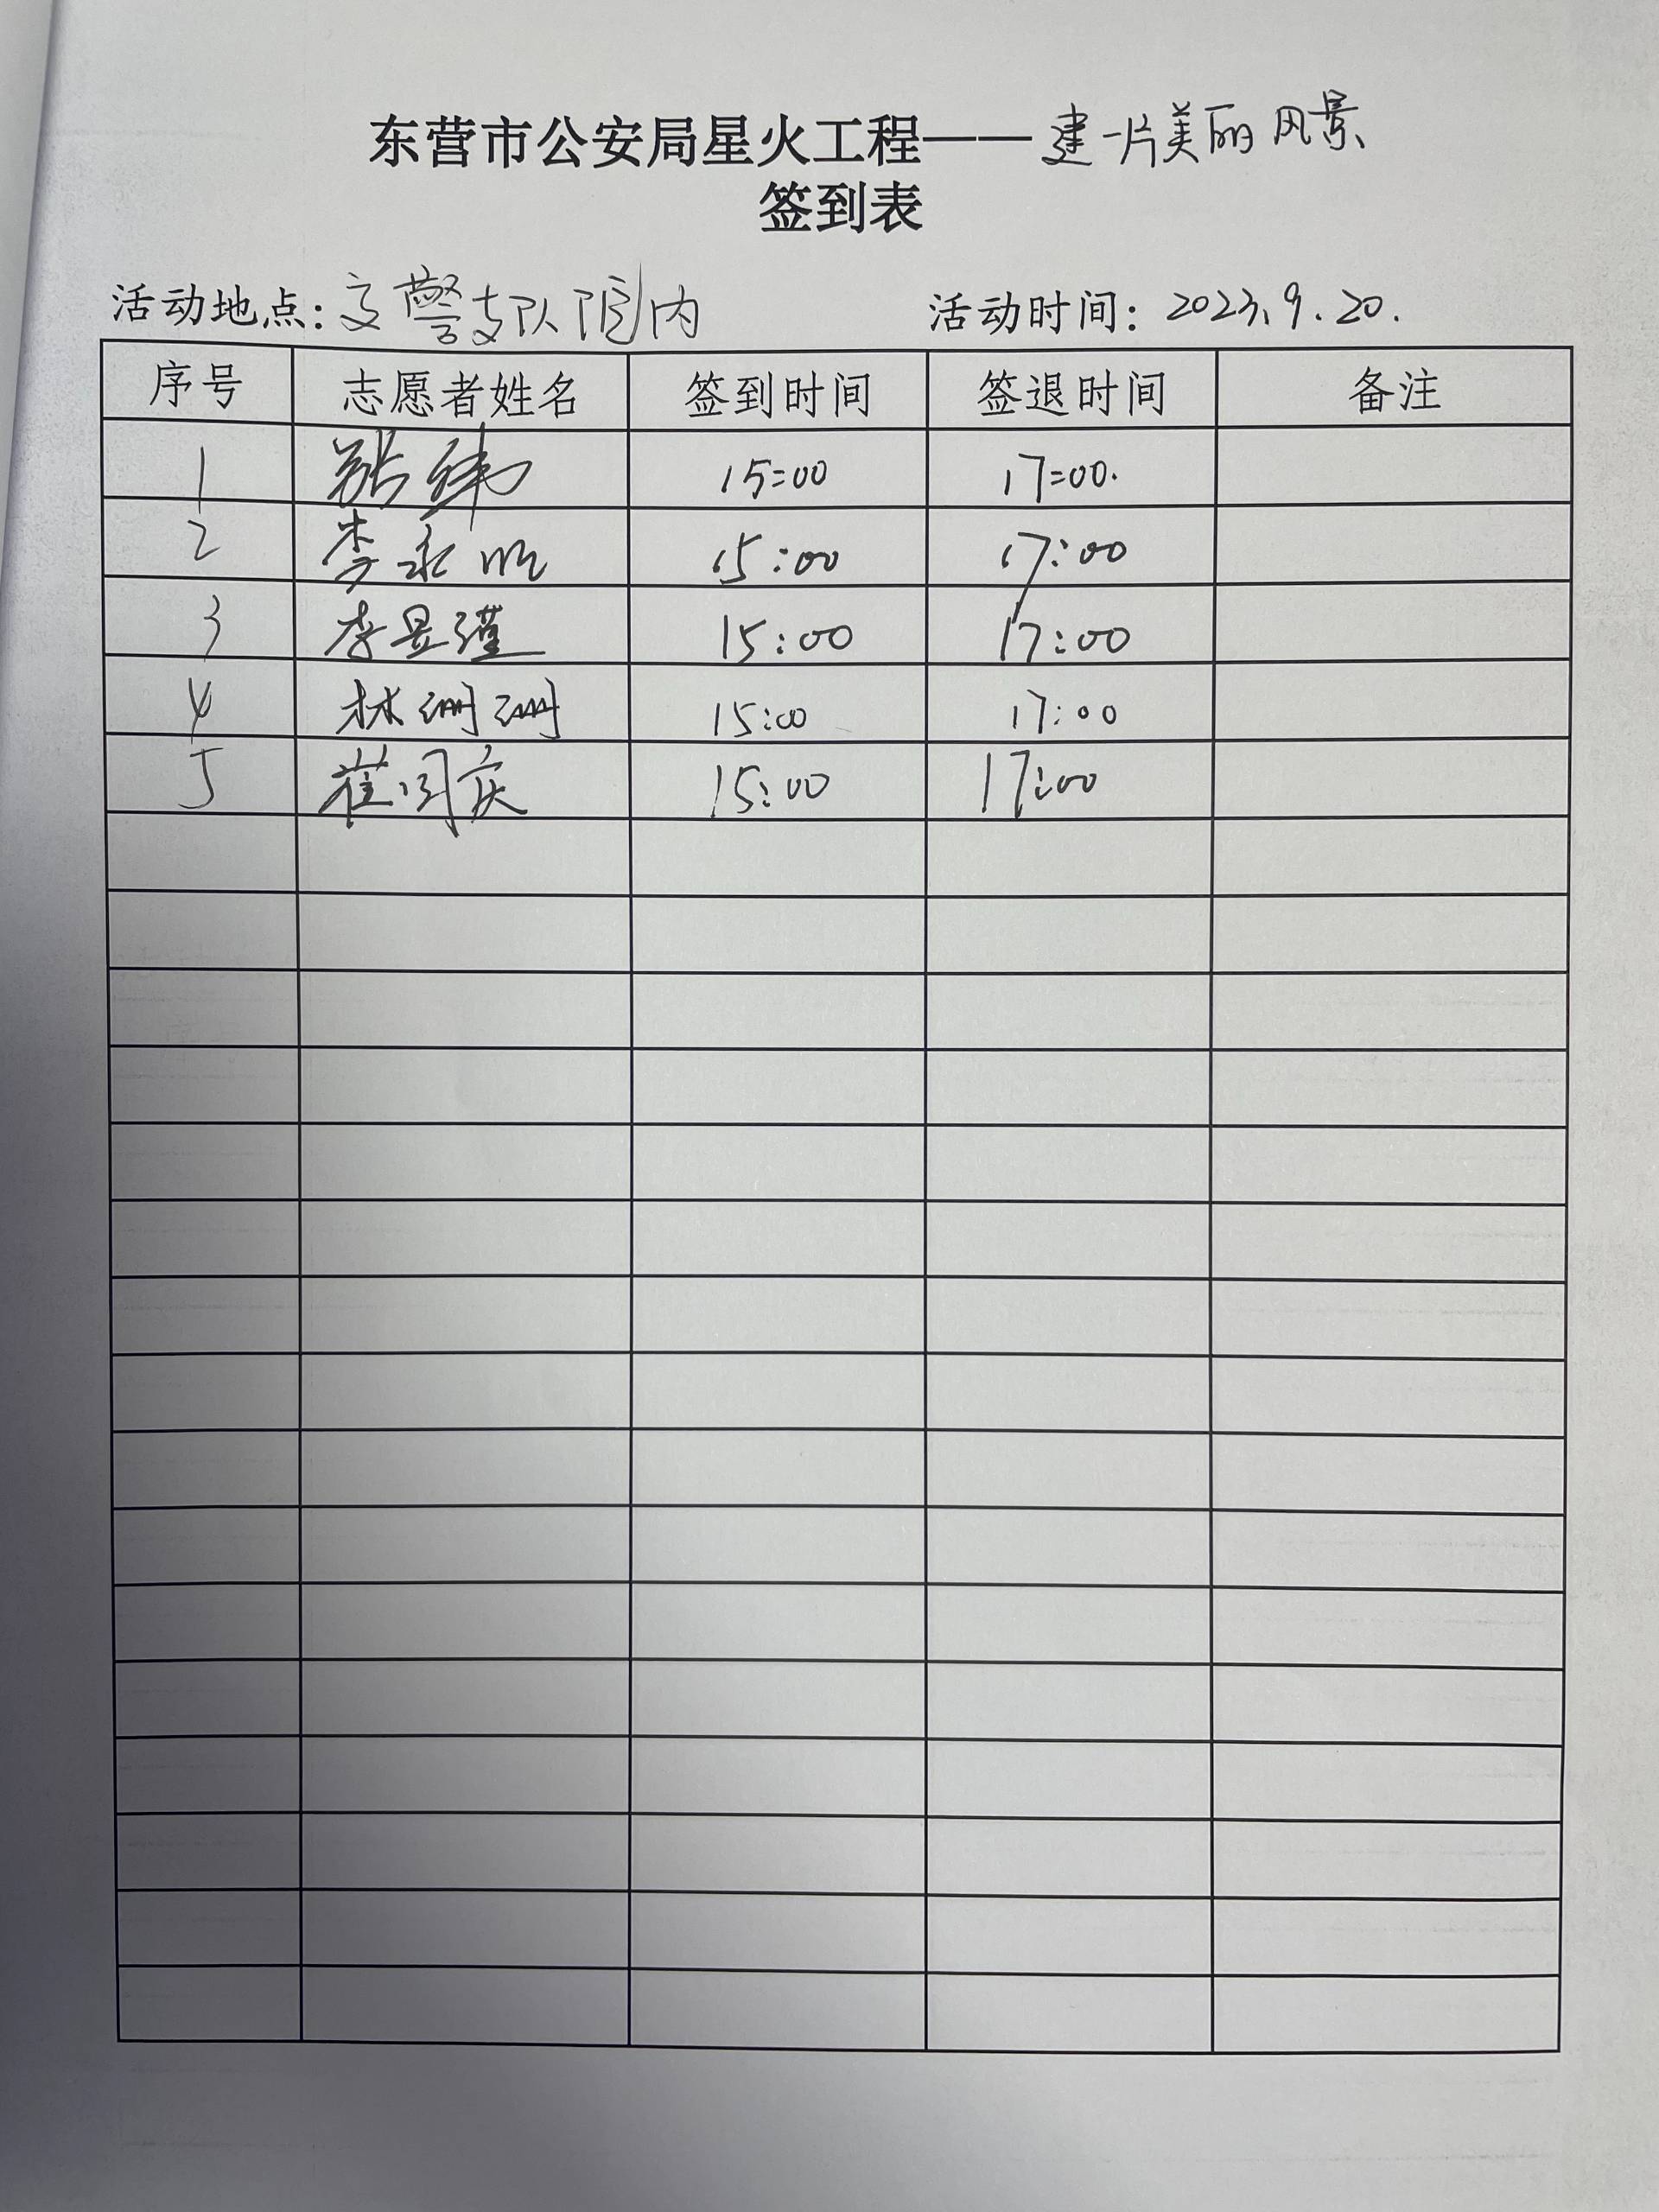 东营市公安局星火工程——建一片美丽风景
签到表
活动地点：交警支队院内 活动时间：2023.9.20.
序号 志愿者姓名 签到时间 签退时间 备注
1 15:00 17:00.
2 李永 15:00 17:00
3 李昱瑾 15:00 17:00
4 林珊珊 15:00 17:00
5 崔同庆 15:00 17:00